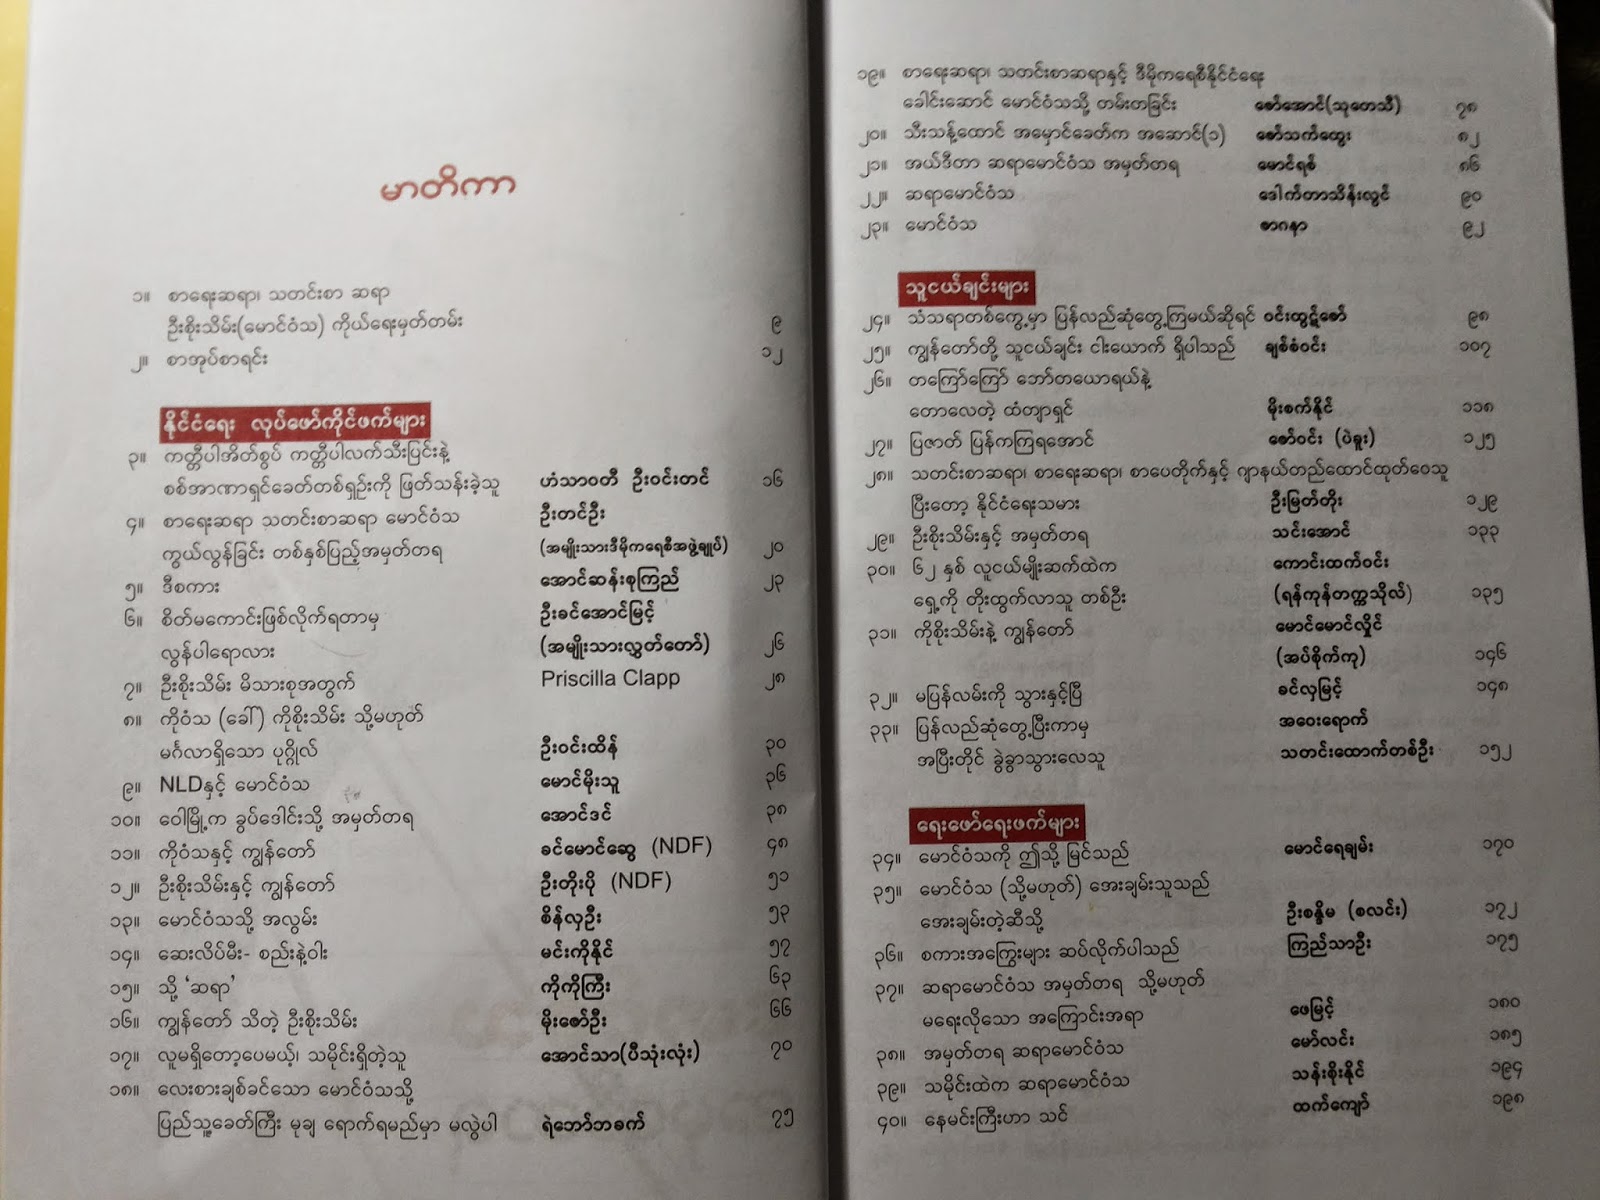 မာတိကာ
၁။ စာရေးဆရာ၊ သတင်းစာ ဆရာ
ဦးစိုးသိမ်း(မောင်ဝံသ) ကိုယ်ရေးမှတ်တမ်း ၉
၂။ စာအုပ်စာရင်း ၁၂
နိုင်ငံရေး လုပ်ဖော်ကိုင်ဖက်များ
၃။ ကတ္တီပါအိတ်စွပ် ကတ္တီပါလက်သီးပြင်းနဲ့
စစ်အာဏာရှင်ခေတ်တစ်ရှဉ်းကို ဖြတ်သန်းခဲ့သူ ဟံသာဝတီ ဦးဝင်းတင် ၁၆
၄။ စာရေးဆရာ သတင်းစာဆရာ မောင်ဝံသ ဦးတင်ဦး
ကွယ်လွန်ခြင်း တစ်နှစ်ပြည့်အမှတ်တရ (အမျိုးသားဒီမိုကရေစီအဖွဲ့ချုပ်) ၂၀
၅။ ဒီစကား အောင်ဆန်းစုကြည် ၂၃
၆။ စိတ်မကောင်းဖြစ်လိုက်ရတာမှ ဦးခင်အောင်မြင့်
လွန်ပါရောလား (အမျိုးသားလွှတ်တော်) ၂၆
၇။ ဦးစိုးသိမ်း မိသားစုအတွက် Priscilla Clapp ၂၈
၈။ ကိုဝံသ (ခေါ်) ကိုစိုးသိမ်း သို့မဟုတ်
မင်္ဂလာရှိသော ပုဂ္ဂိုလ် ဦးဝင်းထိန် ၃၀
၉။ NLDနှင့် မောင်ဝံသ မောင်မိုးသူ ၃၆
၁၀။ ဝေါမြို့က ခွပ်ဒေါင်းသို့ အမှတ်တရ အောင်ဒင် ၃၈
၁၁။ ကိုဝံသနှင့် ကျွန်တော် ခင်မောင်ဆွေ (NDF) ၄၈
၁၂။ ဦးစိုးသိမ်းနှင့် ကျွန်တော် ဦးတိုးပို (NDF) ၅၁
၁၃။ မောင်ဝံသသို့ အလွမ်း စိန်လှဦး ၅၃
၁၄။ ဆေးလိပ်မီး- စည်းနဲ့ဝါး မင်းကိုနိုင် ၅၇
၁၅။ သို့ ‘ဆရာ’ ကိုကိုကြီး ၆၃
၁၆။ ကျွန်တော် သိတဲ့ ဦးစိုးသိမ်း မိုးဇော်ဦး ၆၆
၁၇။ လူမရှိတော့ပေမယ့်၊ သမိုင်းရှိတဲ့သူ အောင်သာ(ပီသုံးလုံး) ၇၀
၁၈။ လေးစားချစ်ခင်သော မောင်ဝံသသို့
ပြည်သူ့ခေတ်ကြီး မုချ ရောက်ရမည်မှာ မလွဲပါ ရဲဘော်ဘခက် ၇၅
၁၉။ စာရေးဆရာ၊ သတင်းစာဆရာနှင့် ဒီမိုကရေစီနိုင်ငံရေး
ခေါင်းဆောင် မောင်ဝံသသို့ တမ်းတခြင်း ဇော်အောင်(သုတေသီ) ၇၈
၂၀။ သီးသန့်ထောင် အမှောင်ခေတ်က အဆောင်(၁) ဇော်သက်ထွေး ၈၂
၂၁။ အယ်ဒီတာ ဆရာမောင်ဝံသ အမှတ်တရ မောင်ရစ် ၈၆
၂၂။ ဆရာမောင်ဝံသ ဒေါက်တာသိန်းလွင် ၉၀
၂၃။ မောင်ဝံသ ဇာဂနာ ၉၂
သူငယ်ချင်းများ
၂၄။ သံသရာတစ်ကွေ့မှာ ပြန်လည်ဆုံတွေ့ကြမယ်ဆိုရင် ဝင်းထွဋ်ဇော် ၉၈
၂၅။ ကျွန်တော်တို့ သူငယ်ချင်း ငါးယောက် ရှိပါသည် ချစ်စံဝင်း ၁၀၇
၂၆။ တကြော်ကြော် ဘော်တယောရယ်နဲ့
တောလေတဲ့ ထံတျာရှင် မိုးစက်နိုင် ၁၁၈
၂၇။ ပြဇာတ် ပြန်ကကြရအောင် ဇော်ဝင်း (ပဲခူး) ၁၂၅
၂၈။ သတင်းစာဆရာ၊ စာရေးဆရာ၊ စာပေတိုက်နှင့် ဂျာနယ်တည်ထောင်ထုတ်ဝေသူ
ပြီးတော့ နိုင်ငံရေးသမား ဦးမြတ်တိုး ၁၂၉
၂၉။ ဦးစိုးသိမ်းနှင့် အမှတ်တရ သင်းအောင် ၁၃၃
၃၀။ ၆၂ နှစ် လူငယ်မျိုးဆက်ထဲက ကောင်းထက်ဝင်း
ရှေ့ကို တိုးထွက်လာသူ တစ်ဦး (ရန်ကုန်တက္ကသိုလ်) ၁၃၅
၃၁။ ကိုစိုးသိမ်းနဲ့ ကျွန်တော် မောင်မောင်လှိုင်
(အပ်စိုက်ကု) ၁၄၆
၃၂။ မပြန်လမ်းကို သွားနှင့်ပြီ ခင်လှမြင့် ၁၄၈
၃၃။ ပြန်လည်ဆုံတွေ့ပြီးကာမှ အဝေးရောက်
အပြီးတိုင် ခွဲခွာသွားလေသူ သတင်းထောက်တစ်ဦး ၁၅၂
ရေးဖော်ရေးဖက်များ
၃၄။ မောင်ဝံသကို ဤသို့ မြင်သည် မောင်ရေချမ်း ၁၇၀
၃၅။ မောင်ဝံသ (သို့မဟုတ်) အေးချမ်းသူသည်
အေးချမ်းတဲ့ဆီသို့ ဦးစန္ဒိမ (စလင်း) ၁၇၂
၃၆။ စကားအကြွေးများ ဆပ်လိုက်ပါသည် ကြည်သာဦး ၁၇၅
၃၇။ ဆရာမောင်ဝံသ အမှတ်တရ သို့မဟုတ်
မရေးလိုသော အကြောင်းအရာ ဖေမြင့် ၁၈၀
၃၈။ အမှတ်တရ ဆရာမောင်ဝံသ မော်လင်း ၁၈၅
၃၉။ သမိုင်းထဲက ဆရာမောင်ဝံသ သန်းစိုးနိုင် ၁၉၄
၄၀။ နေမင်းကြီးဟာ သင် ထက်ကျော် ၁၉၈